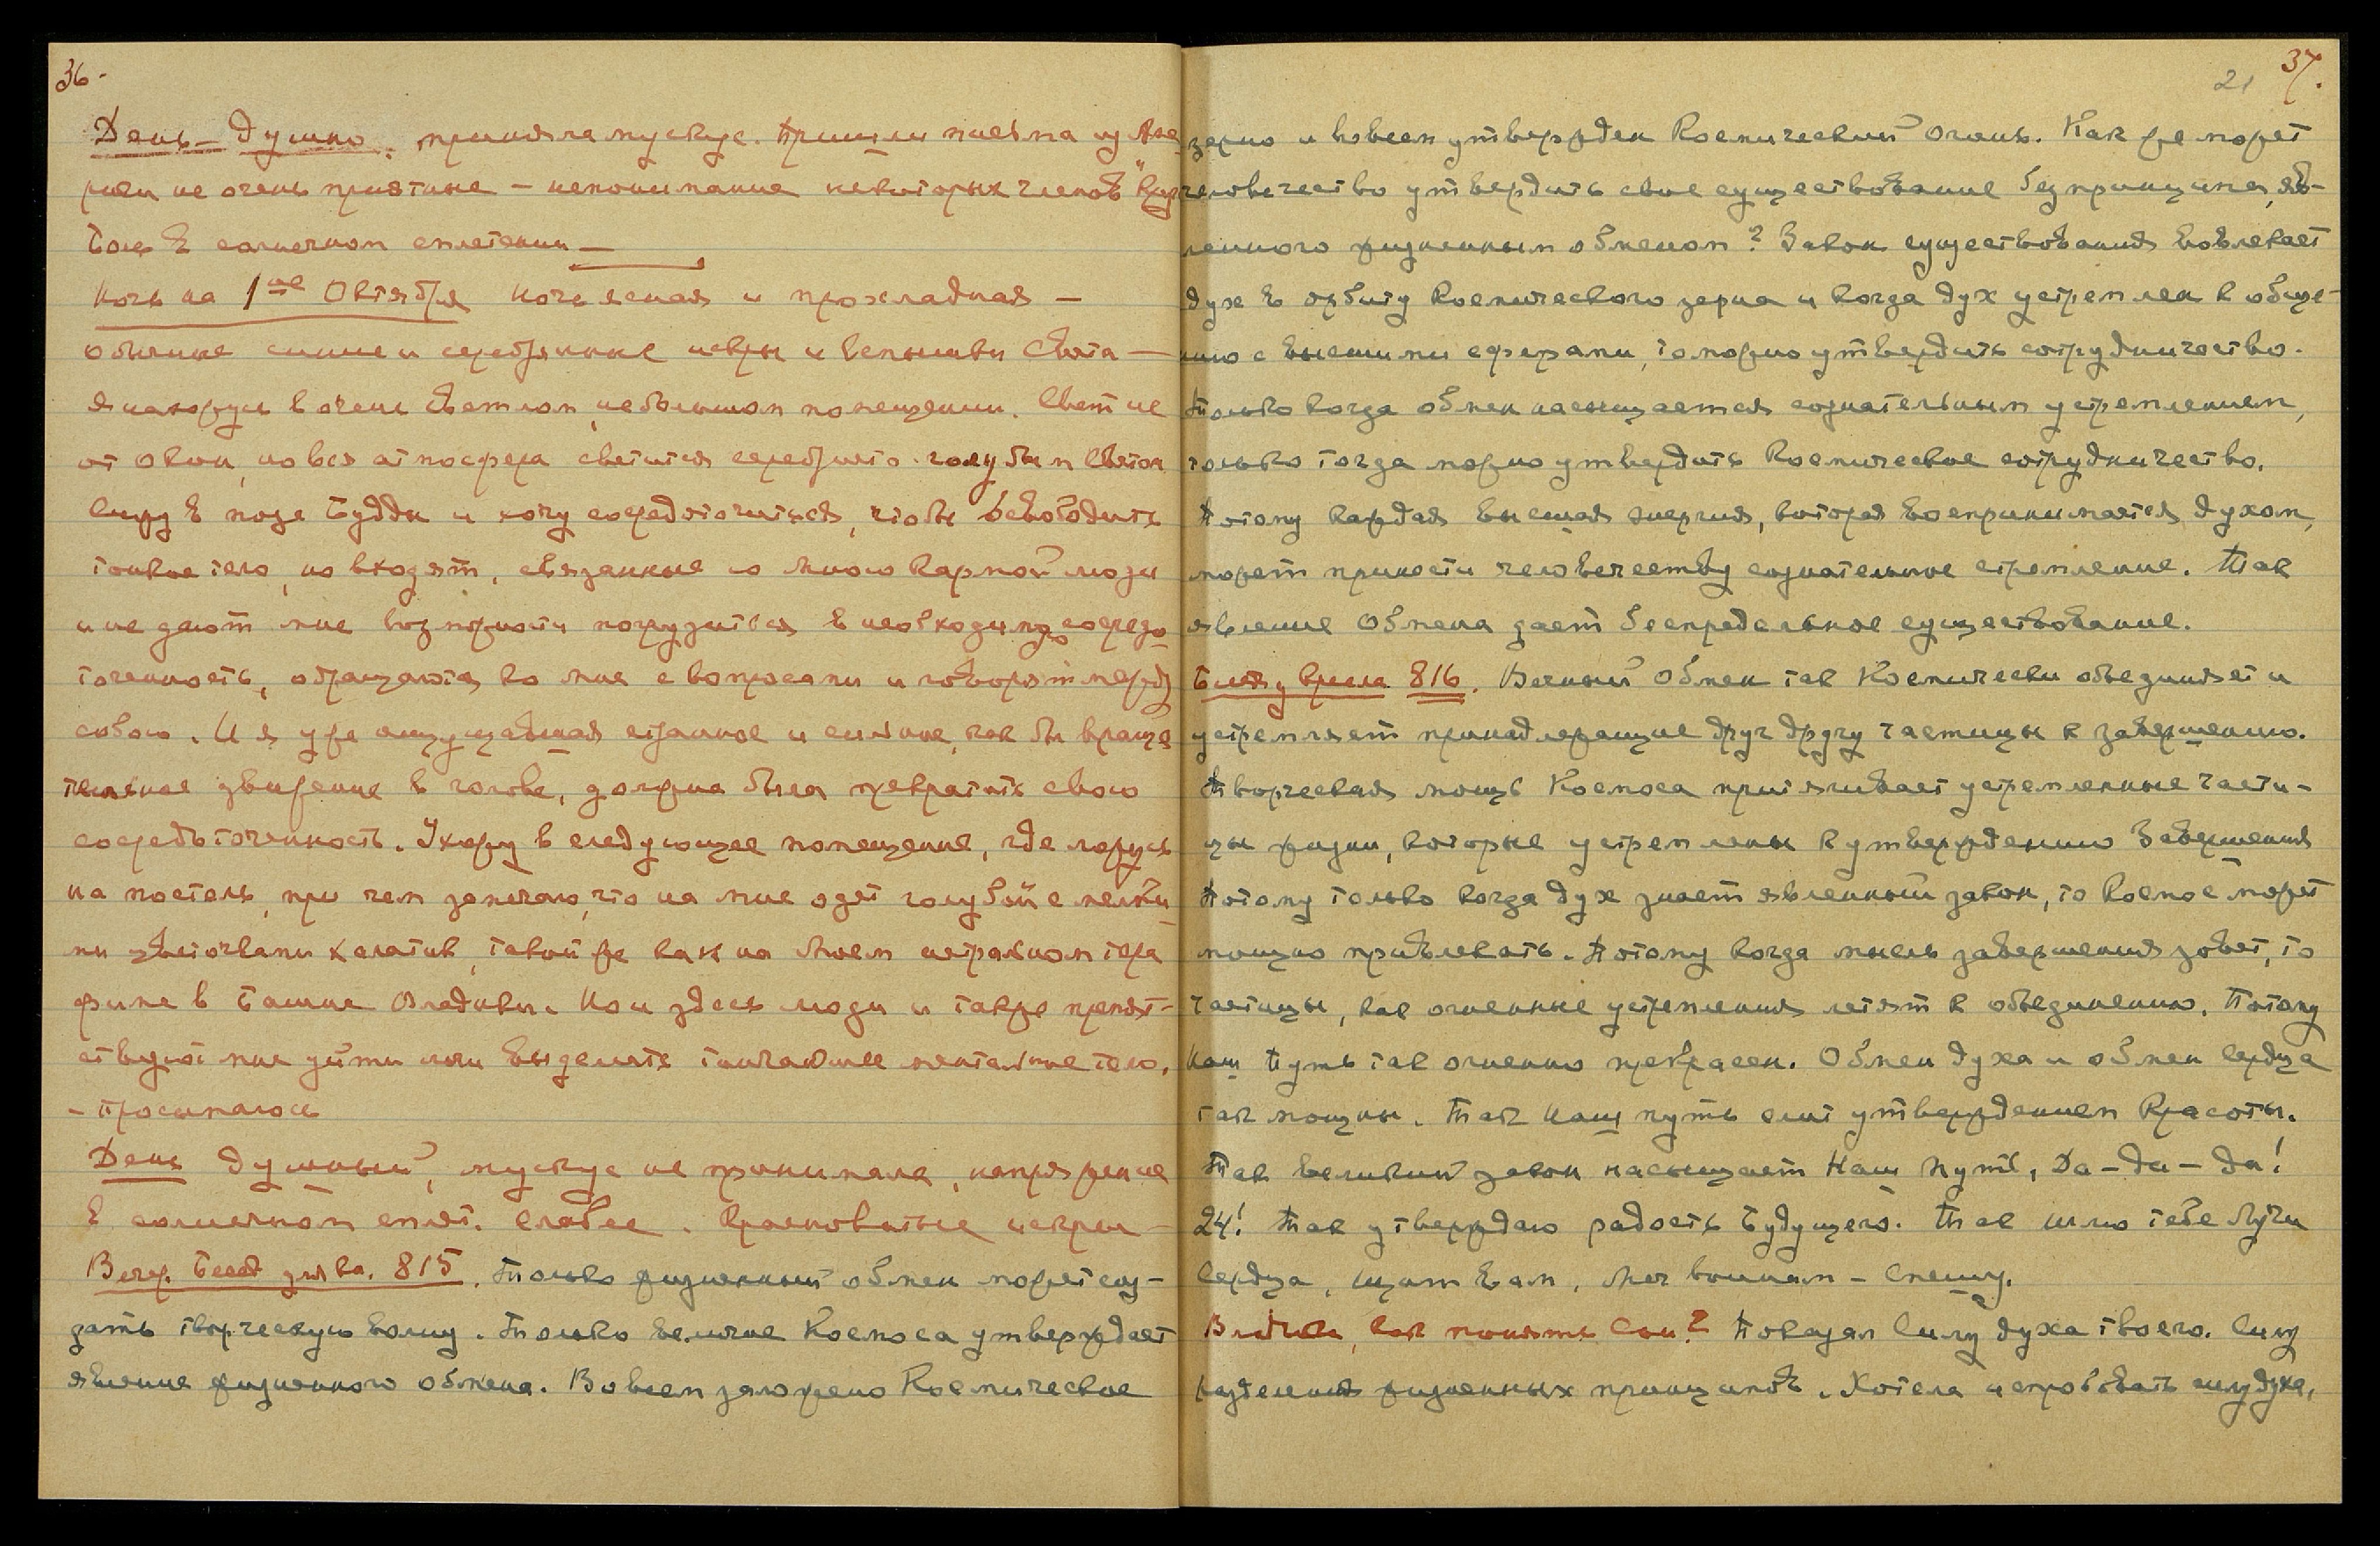 36.
День – душно, приняла мускус. Пришли письма из Аме
рики не очень приятные – непонимание некоторых членов "Кор
Боль в солнечном сплетении —
Ночь на 1ое Октября Ночь ясная и прохладная –
обычные синие и серебрянные искры и вспышки Света —
я нахожусь в очень светлом, небольшом помещении. Свет не
от окон, но вся атмосфера светится серебристо-голубым Светом.
Сижу в позе Будды и хочу сосредоточиться, чтобы освободить
тонкое тело, но входят, связанные со мною кармой люди
и не дают мне возможности погрузиться в необходимую сосредо
точенность, обращаются ко мне с вопросами и говорят между
собою. И я уже ощущавшая странное и сильное, как бы враща
тельное движение в голове, должна была прекратить свою
сосредоточенность. Ухожу в следующее помещение, где ложусь
на постель, при чем замечаю, что на мне одет голубой с мелки
ми цветочками халатик, такой же как на Моем астральном тера
фиме в Башне Владыки. Но и здесь люди и также препят-
ствуют мне уйти или выделить тончайшее ментальное тело.
– Просыпаюсь
День душный, мускус не принимала, напряжение
в солнечном сплет. слабее. Красноватые искры —
Вечер. Бесед для кн. 815. Только жизненный обмен может соз-
дать творческую волну. Только величие Космоса утверждает
явление жизненного обмена. Во всем заложено Космическое
21 37.
зерно и во всем утвержден Космический Огонь. Как же может
человечество утвердить свое существование без принципа, яв-
ленного жизненным обменом? Закон существования вовлекает
дух в орбиту Космического зерна и когда дух устремлен к обще-
нию с высшими сферами, то можно утвердить сотрудничество.
Только когда обмен насыщается сознательным устремлением,
только тогда можно утвердить Космическое сотрудничество.
Потому каждая высшая энергия, которая воспринимается духом,
может принести человечеству сознательное стремление. Так
явление Обмена дает беспредельное существование.
816. Вечный Обмен так Космически объединяет и
устремляет принадлежащие друг другу частицы к завершению.
Творческая мощь Космоса притягивает устремленные части-
цы жизни, которые устремлены к утверждению Завершения
Потому только когда дух знает явленный закон, то Космос может
мощно привлекать. Потому когда мысль завершения зовет, то
частицы, как огненные устремления летят к объединению. Потому
Наш Путь так огненно прекрасен. Обмен духа и обмен Сердца
так мощны. Так Наш путь есть утверждением Красоты.
Так великий закон насыщает Наш Путь, Да – да – да!
24! Так утверждаю радость Будущего. Так шлю тебе Лучи
Сердца, Щит вам, Меч воинам – Спешу.
Владыка, как понять Сон? Показал Силу духа твоего. Силу
разделения жизненных принципов. Хотела испробовать силу духа,